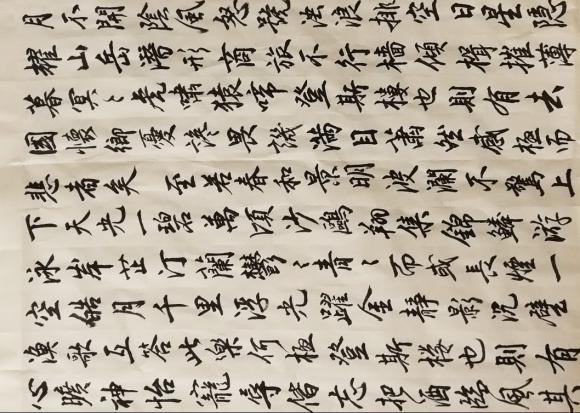 月不開陰風怒號濁浪排空日星隱
耀山岳潛形商旅不行檣傾楫摧薄
暮冥〻虎嘯猿啼登斯樓也則有去
國懷鄉憂讒畏譏滿目蕭然感極而
悲者矣 至若春和景明波瀾不驚上
下天光一碧萬頃沙鷗翔集錦鱗游
泳岸芷汀蘭鬱〻青〻而或長煙一
空皓月千里浮光躍金靜影沉璧
漁歌互答此樂何極登斯樓也則有
心曠神怡寵辱偕忘把酒臨風其